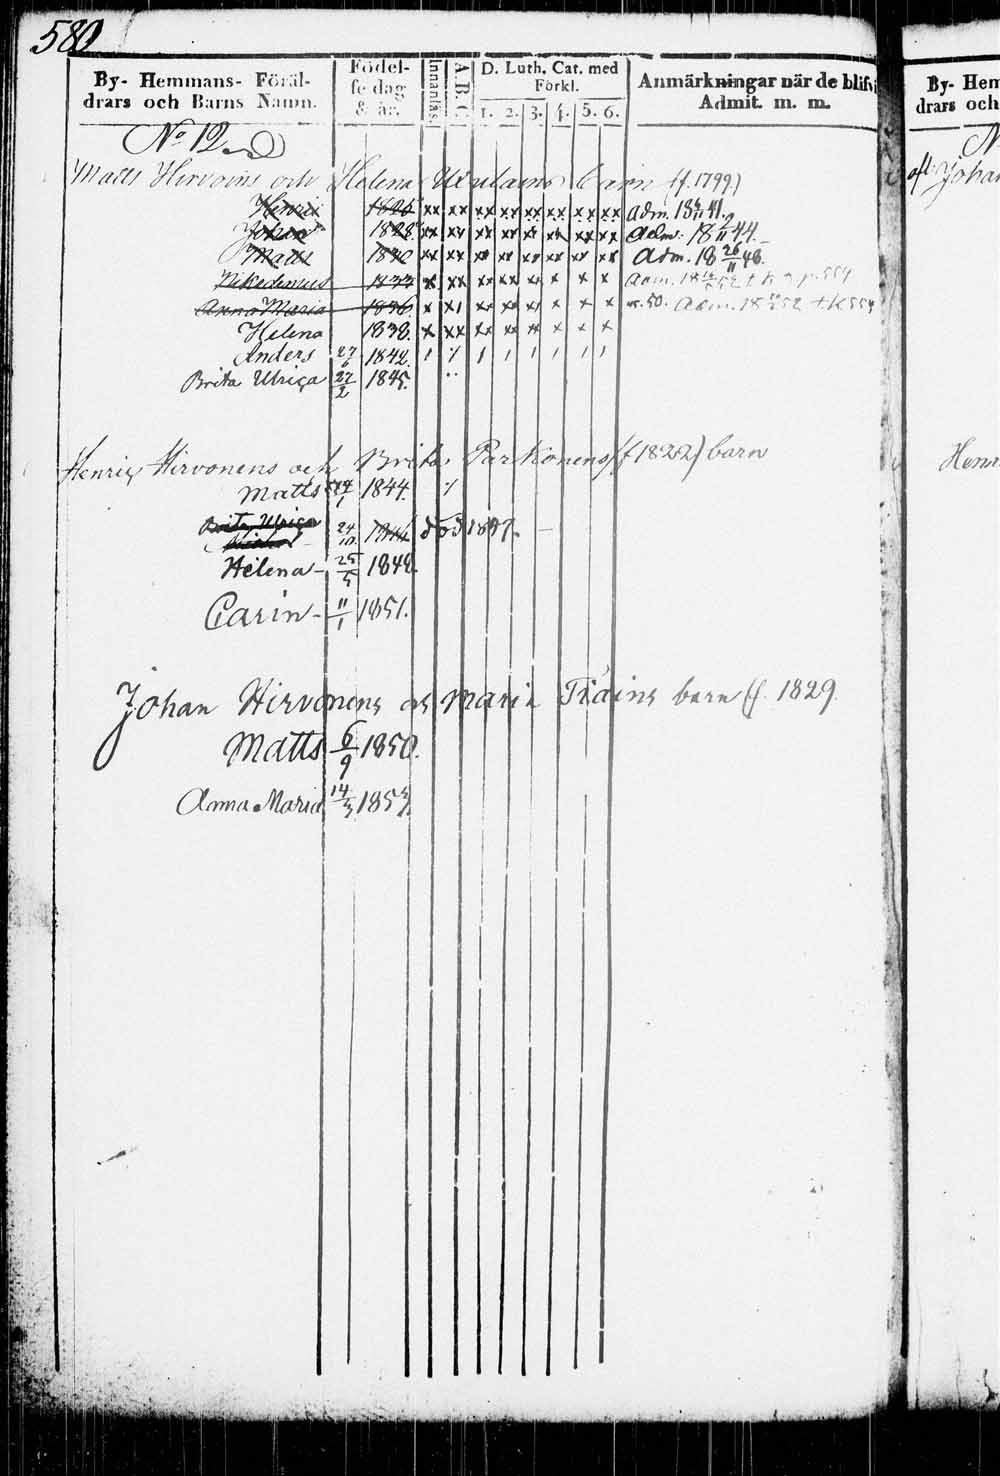 580
By- Hemmans- Föräl-
drars och Barns Namn.
Födel-
se dag
& år.
Innanläs.
A.B.C.
D. Luth. Cat. med
Förkl.
1. 2. 3. 4. 5. 6.
Anmärkningar när de blifvi
Admit. m. m.
No 12
Matts Hirvoins och Helena barn (f. 1799.)
Henric 1826 xx xx xx xx xx xx xx xx Adm. 18 41.
Johan 1828 xx xx xx xx xx xx xx xx Adm. 18 44.
Matts 1830 xx xx xx xx xx xx xx xx Adm. 18 26/11 48.
Nikodemus 1833 x x xx xx xx x x x Adm. 18 52 p. 554
Anna Maria 1836 x x1 xx xx xx x x x Adm. 18 52 554
Helena 1838. x xx xx xx xx x x x
Anders 27/6 1842. 1 1 1 1 1 1 1
Brita Ulrica 27/2 1845.
Henric Hirvonens och Brita Partionens (f 1822) barn
Matts 1844.
Brita Ulrica
24/10 död 1847.
Helena 25/5 1848.
Carin 11/1 1851.
Johan Hirvonens och Maria barn (f. 1829.
Matts 6/9 1850.
Anna Maria 14/3 185
By- Hem
drars och
Johan
Henri